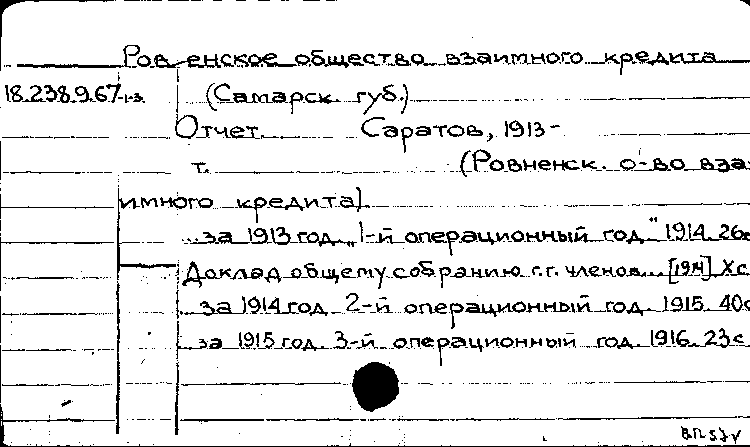 Ровенское общество взаимного кредита
18.238.9.67 1-3. (Самарск. губ.)
Отчет. Саратов, 1913-
т. (Ровненск. о-во вза-
имного кредита).
...за 1913 год. „1-й операционный год." 1914. 26с
Доклад общему собранию г.г. членов... [1914] Xс
...за 1914 год. 2-й операционный год. 1915. 40с
...за 1915 год. 3-й операционный год. 1916. 23с